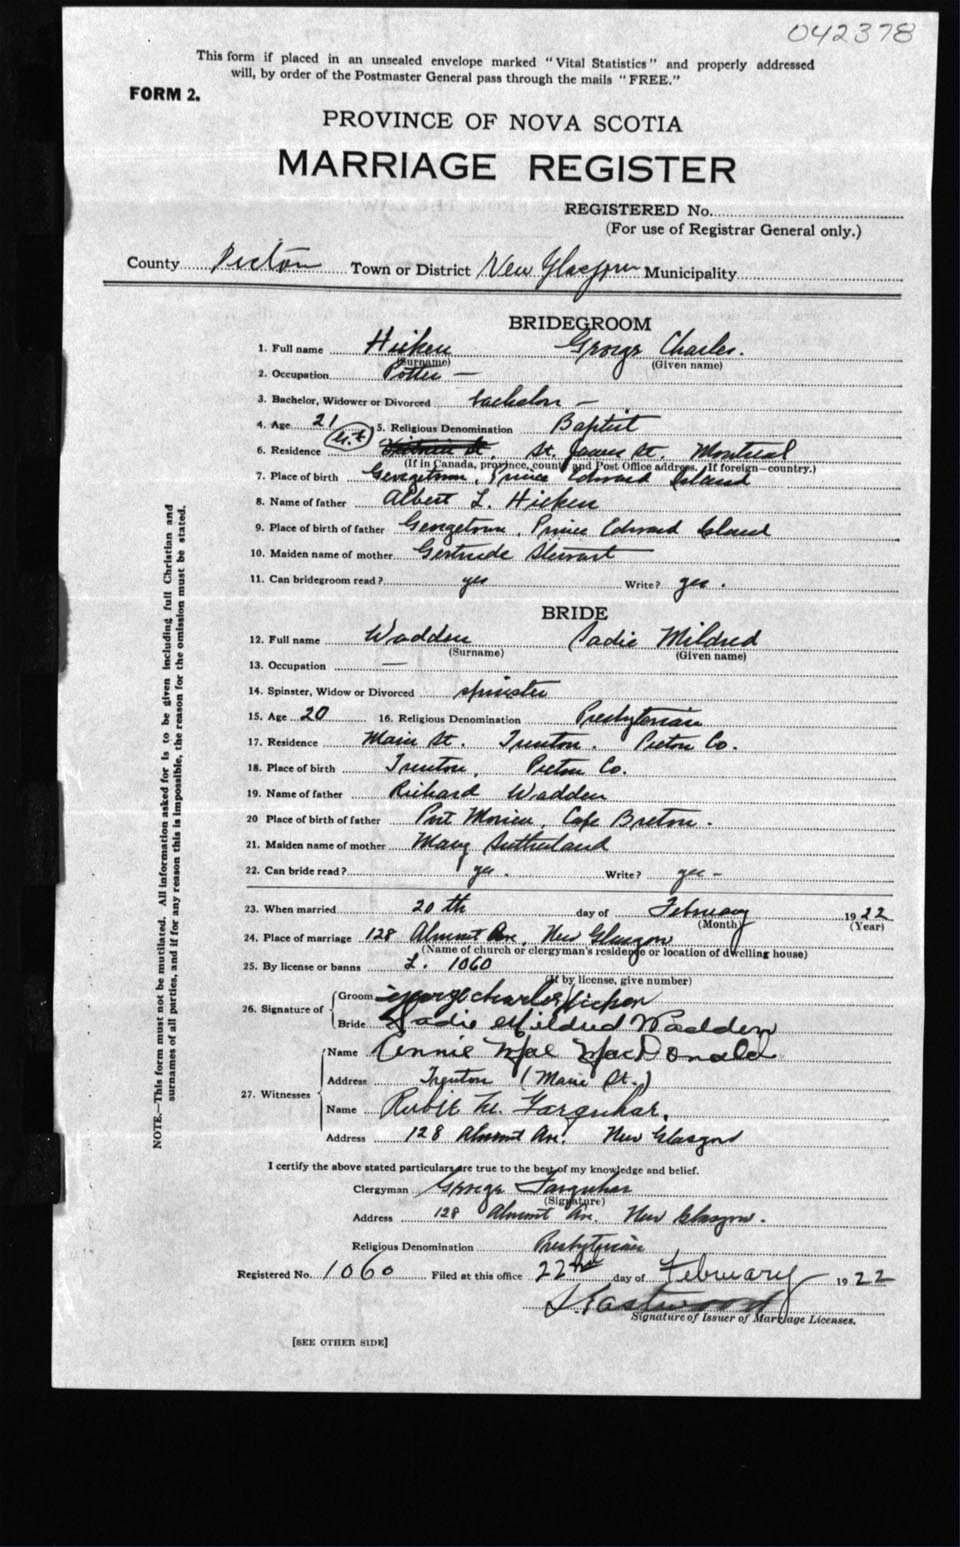 042378
This form if placed in an unsealed envelope marked "Vital Statistics" and properly addressed
will, by order of the Postmaster General pass through the mails "FREE."
FORM 2.
PROVINCE OF NOVA SCOTIA
MARRIAGE REGISTER
REGISTERED No.
(For use of Registrar General only.)
County Pictou Town or District New Glasgow Municipality
BRIDEGROOM
1. Full name Hicken George Charles.
(Surname) (Given name)
2. Occupation Potter —
3. Bachelor, Widower or Divorced bachelor —
4. Age 21 5. Religious Denomination Baptist
6. Residence St. James St. Montreal
(If in Canada, province, county and Post Office address. If foreign—country.)
7. Place of birth Georgetown, Prince Edward Island
8. Name of father Albert L. Hicken
9. Place of birth of father Georgetown, Prince Edward Island
10. Maiden name of mother Gertrude Stewart
11. Can bridegroom read? yes Write? yes.
BRIDE
12. Full name Wadden Sadie Mildred
(Surname) (Given name)
13. Occupation —
14. Spinster, Widow or Divorced spinster
15. Age 20 16. Religious Denomination Presbyterian
17. Residence Main St. Trenton. Pictou Co.
18. Place of birth Trenton, Pictou Co.
19. Name of father Richard Wadden
20 Place of birth of father Port Morien, Cape Breton.
21. Maiden name of mother Mary Sutherland
22. Can bride read? yes. Write? yes —
23. When married 20th day of February 1922
(Month) (Year)
24. Place of marriage 128 Almont Ave, New Glasgow
(Name of church or clergyman's residence or location of dwelling house)
25. By license or banns L. 1060
(If by license, give number)
26. Signature of Groom George Charles Hicken
Bride Sadie Mildred Wadden
27. Witnesses Name Annie Mae MacDonald
Address Trenton (Main St.)
Name Robt. M. Farquhar.
Address 128 Almont Av. New Glasgow
I certify the above stated particulars are true to the best of my knowledge and belief.
Clergyman George Farquhar
(Signature)
Address 128 Almont Av. New Glasgow.
Religious Denomination Presbyterian
Registered No. 1060 Filed at this office 22nd day of February 1922
Eastwood
Signature of Issuer of Marriage Licenses.
[SEE OTHER SIDE]
NOTE.—This form must not be mutilated. All information asked for is to be given including full Christian and
surnames of all parties, and if for any reason this is impossible, the reason for the omission must be stated.